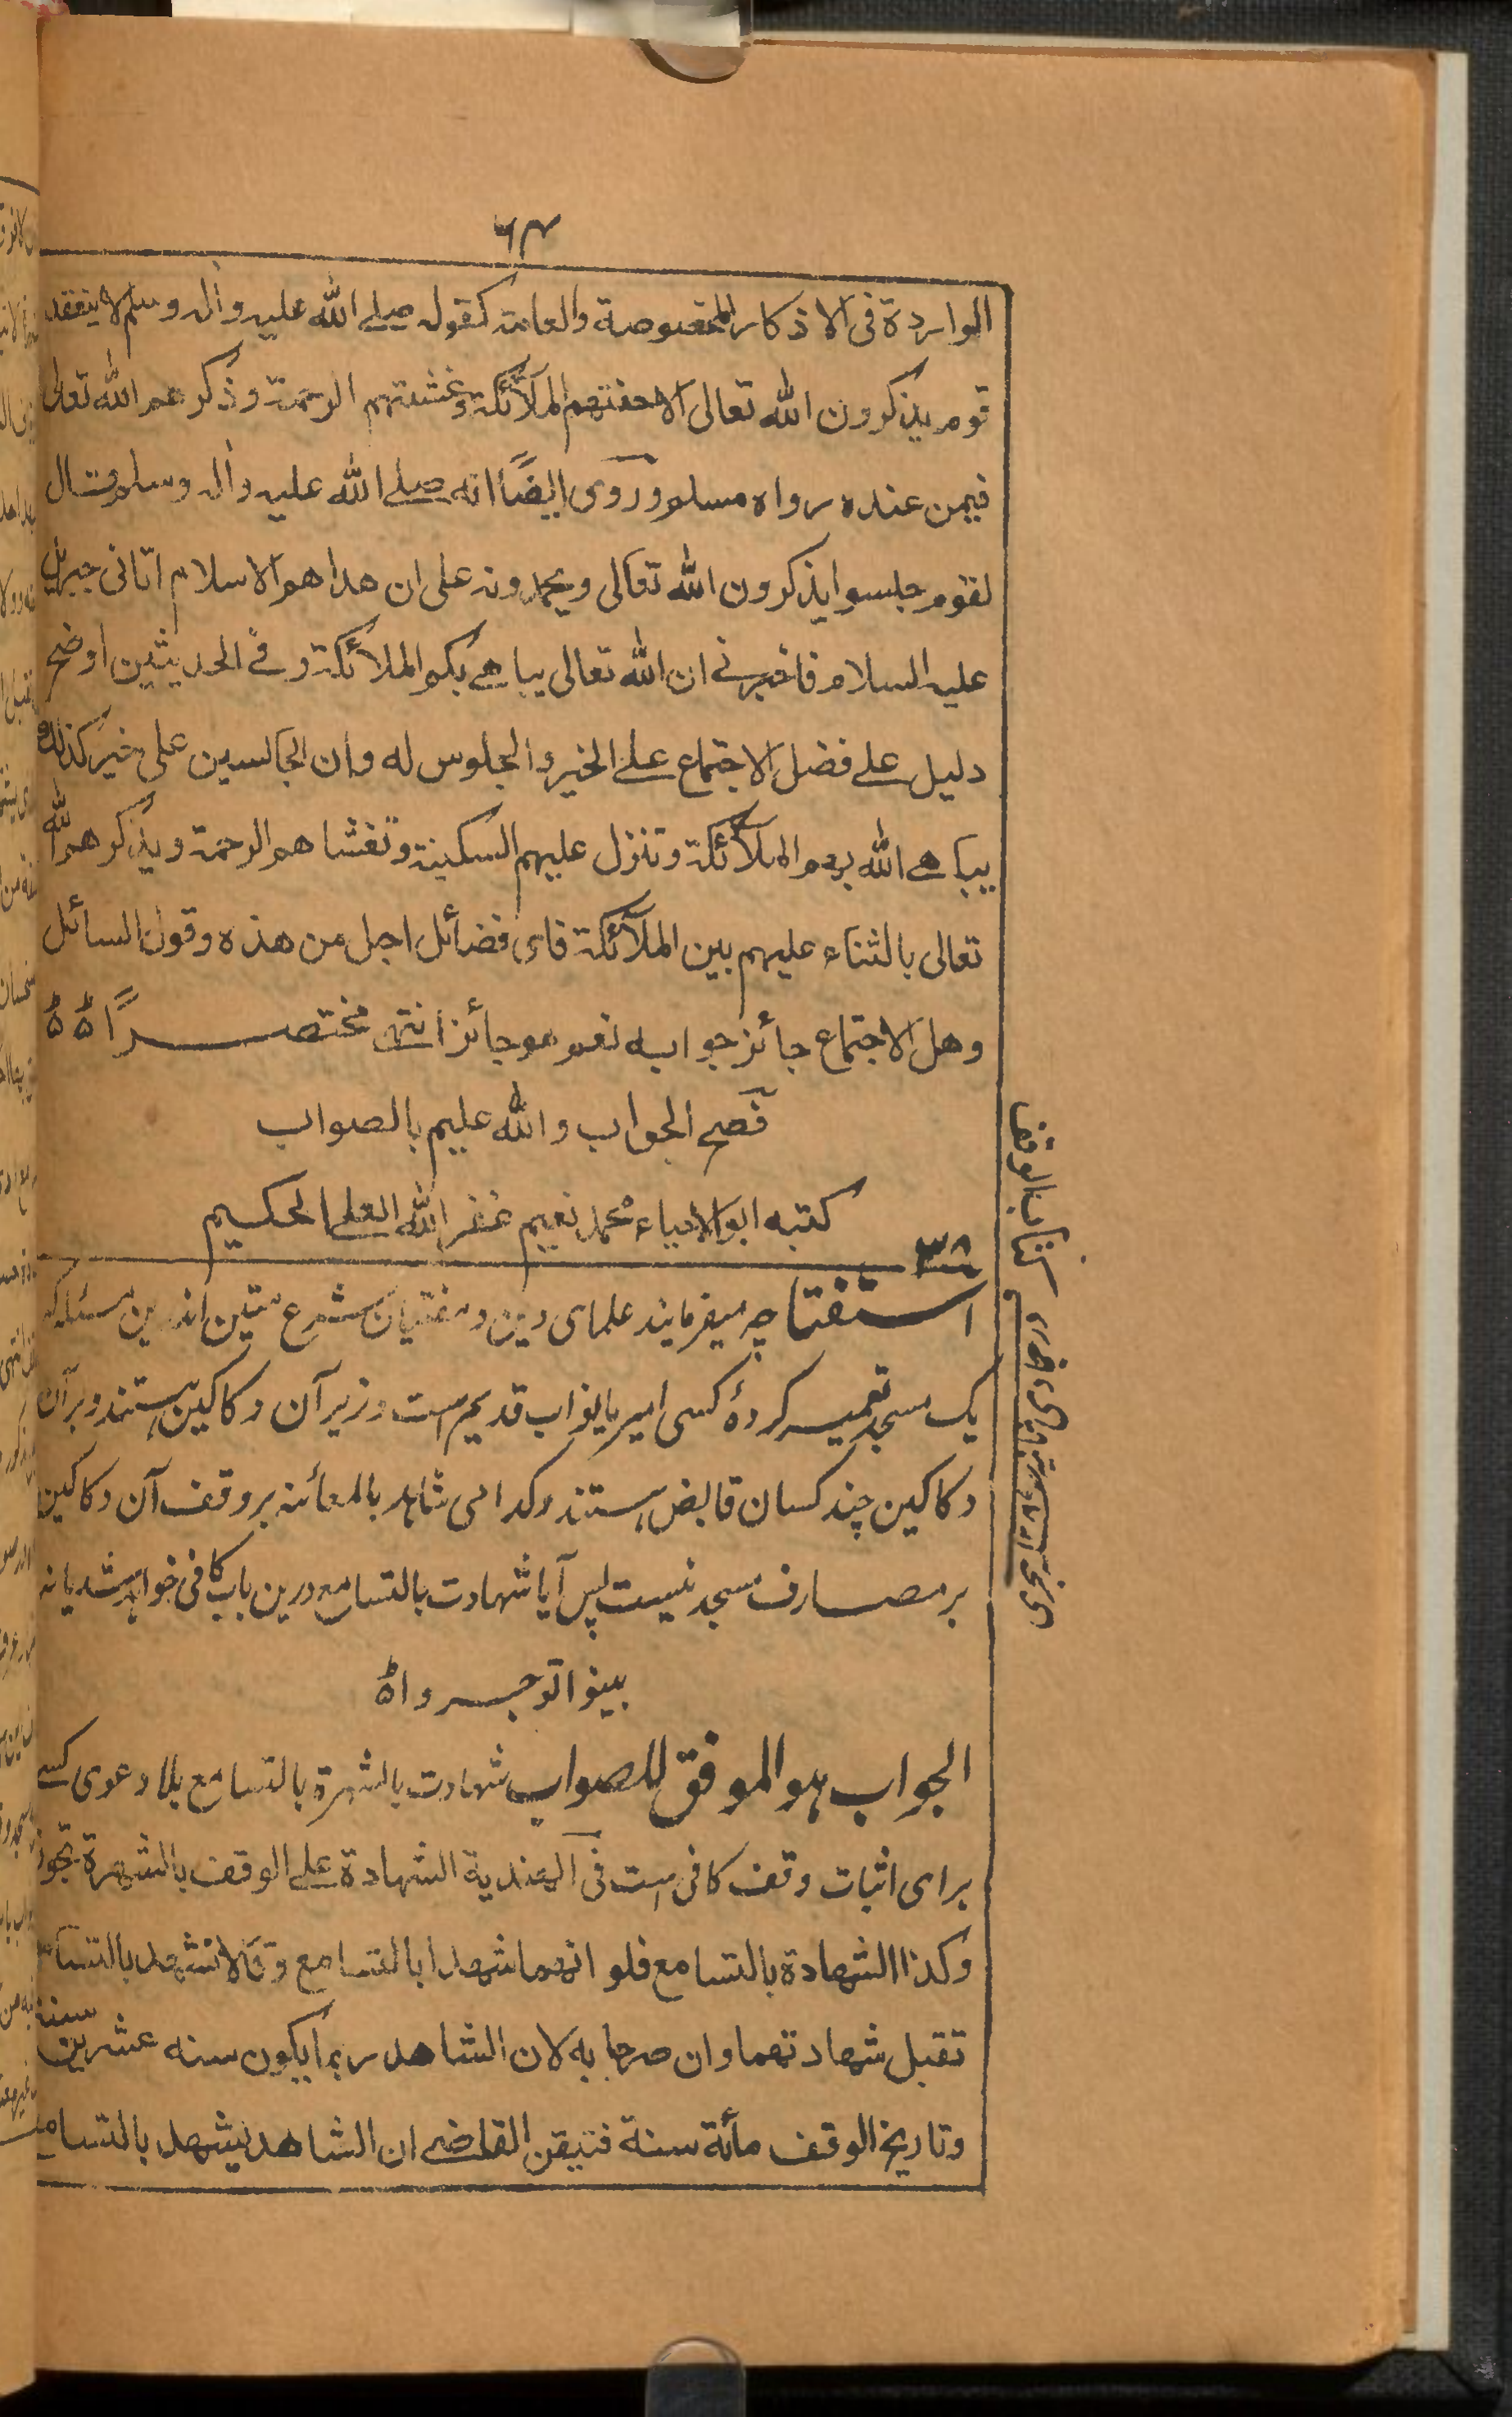 ٦٤
الواردة فى الاذكار المخصوصة والعامة كقوله صلے الله عليه وآله وسلم لا يقعد
قوم يذكرون الله تعالى الا حفتهم الملآئكة وغشيتهم الرحمة وذكرهم الله تعالى
فيمن عنده رواه مسلم وروى ايضًا انه صلے الله عليه وآله وسلم قال
لقوم جلسوا يذكرون الله تعالى ويحمدونه على ان هداهم الاسلام اتانى جبريل
عليه السلام فاخبرنے ان الله تعالى يباهے بكم الملائكة وفے الحديثين اوضح
دليل علے فضل الاجتماع علے الخير والجلوس له وان الجالسين على خير كذلك
يباهے الله بهم الملآئكة وتنزل عليهم السكينة وتغشاهم الرحمة ويذكرهم الله
تعالى بالثناء عليهم بين الملآئكة فاى فضائل اجل من هذه وقول السائل
وهل الاجتماع جائز جوابه نعم هو جائز انتهى مختصرًا
فصح الجواب والله عليم بالصواب
كتبه ابو الاحياء محمد نعيم غفر الله العلے الحكيم
٣٨
استفتا چه ميفرمايند علماى دين ومفتيان شرع متين اندرين مسئله كه
يک مسجد تعمير كردهٔ كسى امير يا نواب قديم است وزير آن دكاكين هستند وبرآن
دكاكين چند كسان قابض هستند وكدامى شاهد بالمعائنه بر وقف آن دكاكين
بر مصارف مسجد نيست پس آيا شهادت بالتسامع درين باب كافى خواهد شد يا نه
بينوا توجروا
الجواب هو الموفق للصواب شهادت بالشهرة بالتسامع بلا دعوى كسے
براى اثبات وقف كافى است فى الهندية الشهادة علے الوقف بالشهرة تجوز
وكذا الشهادة بالتسامع فلو انهما شهدا بالتسامع وقالا نشهد بالتسامع
تقبل شهادتهما وان صرحا به لان الشاهد ربما يكون سنه عشرين سنة
وتاريخ الوقف مائة سنة فتيقن القاضے ان الشاهد يشهد بالتسامع
كتاب الوقف